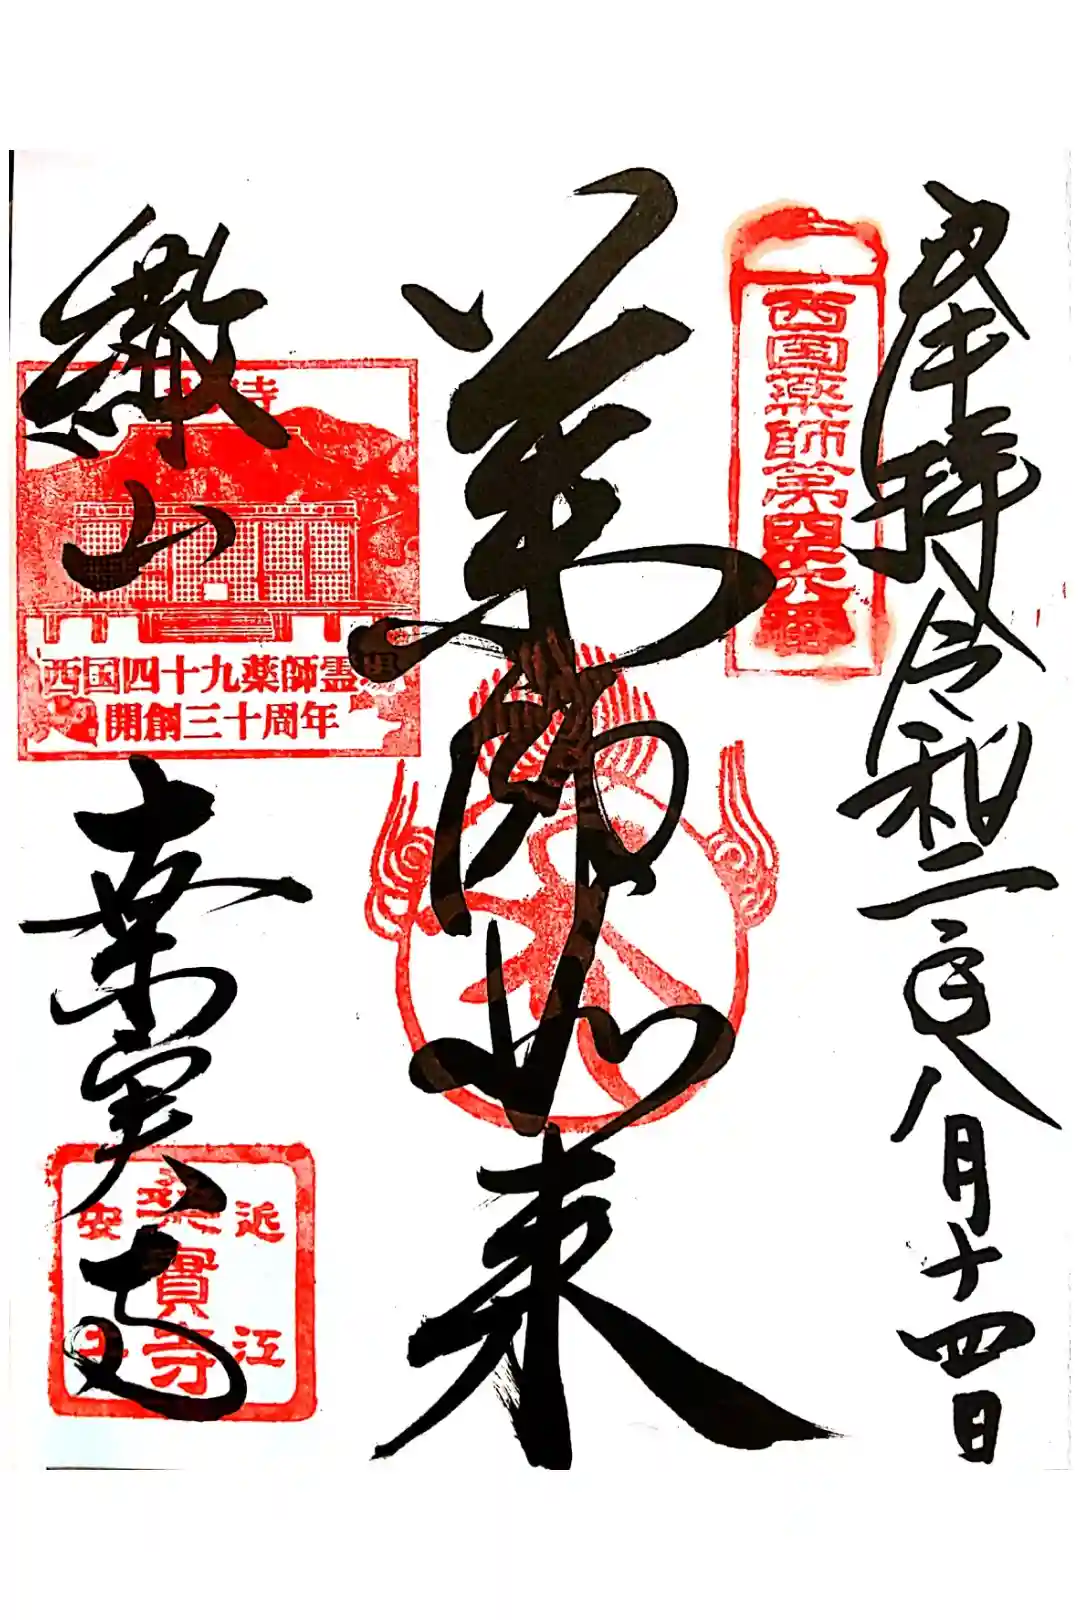 奉拝 令和二歳八月十四日
西国薬師第四十六番
薬師如来
繖山
寺
西国四十九薬師霊場
開創三十周年
桑実寺
近江
桑實寺
安土